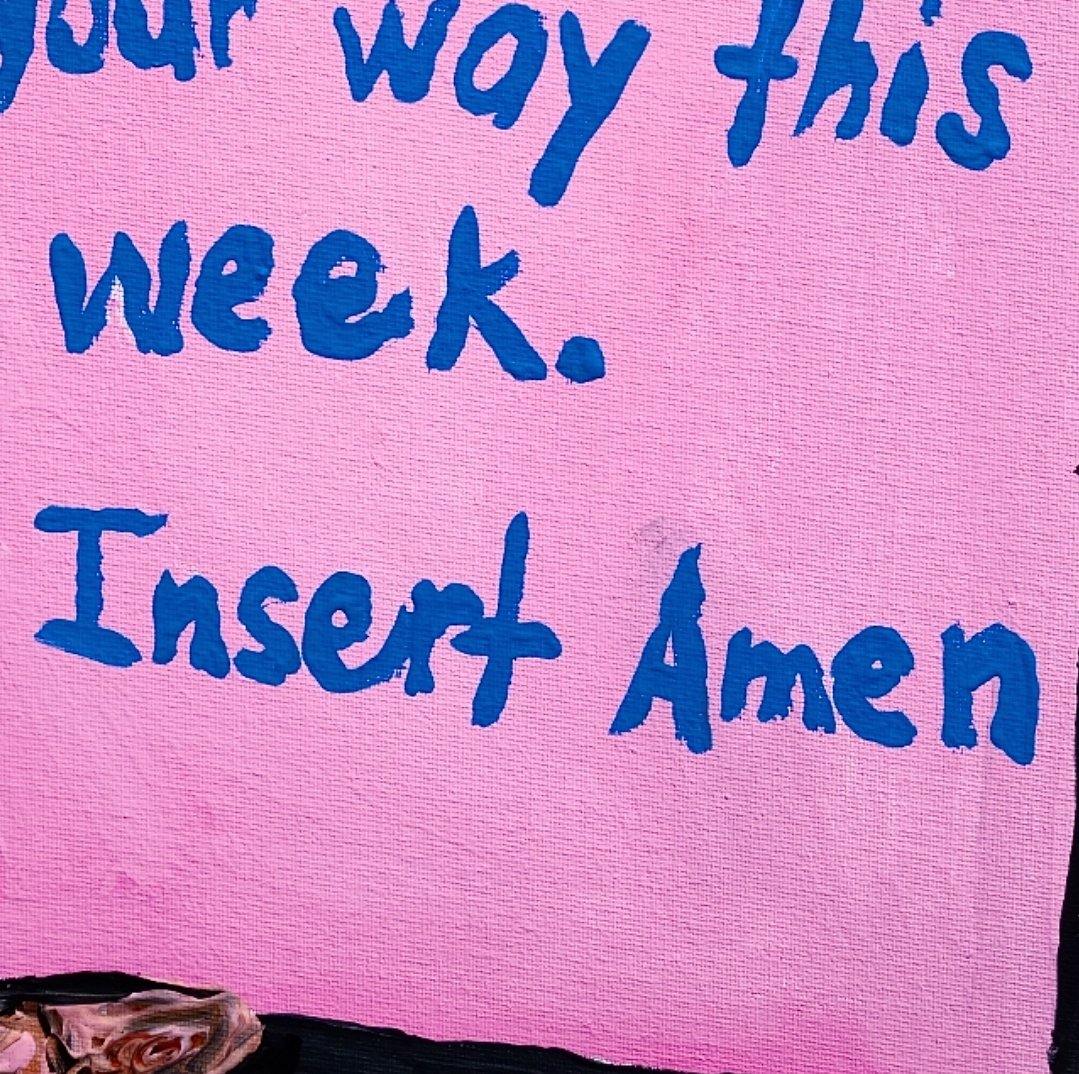 your way this
week.
Insert Amen